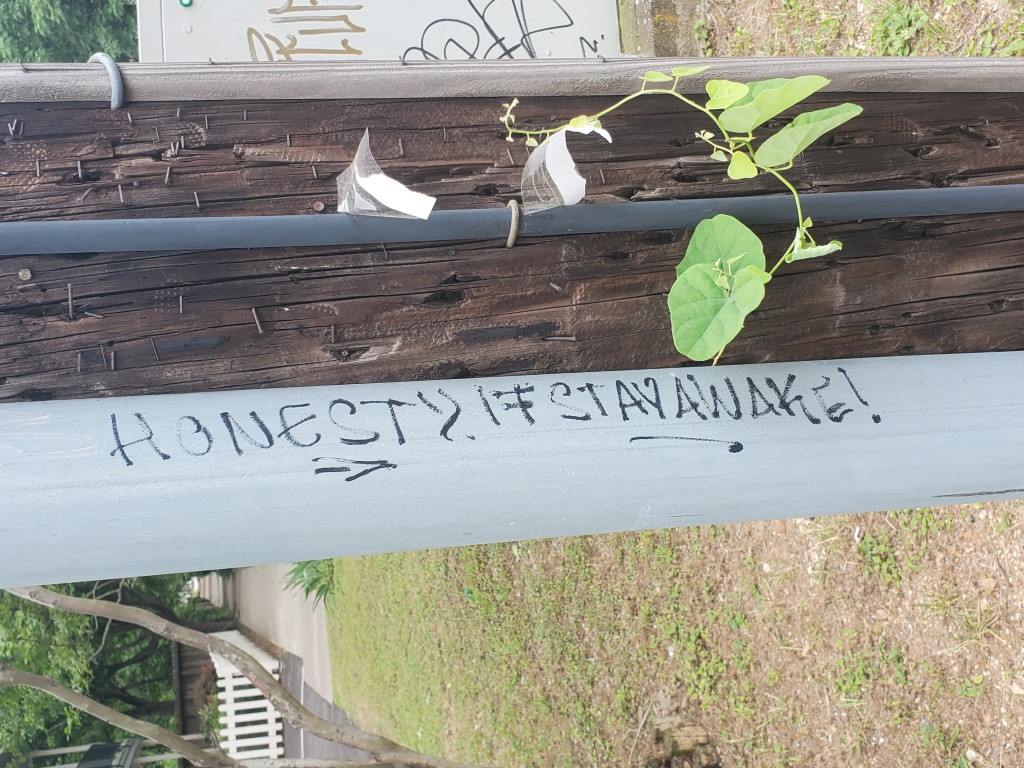 HONESTY. 1# STAY AWAKE!